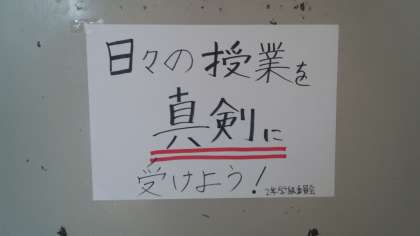 日々の授業を
真剣に
受けよう!
2年学級委員会